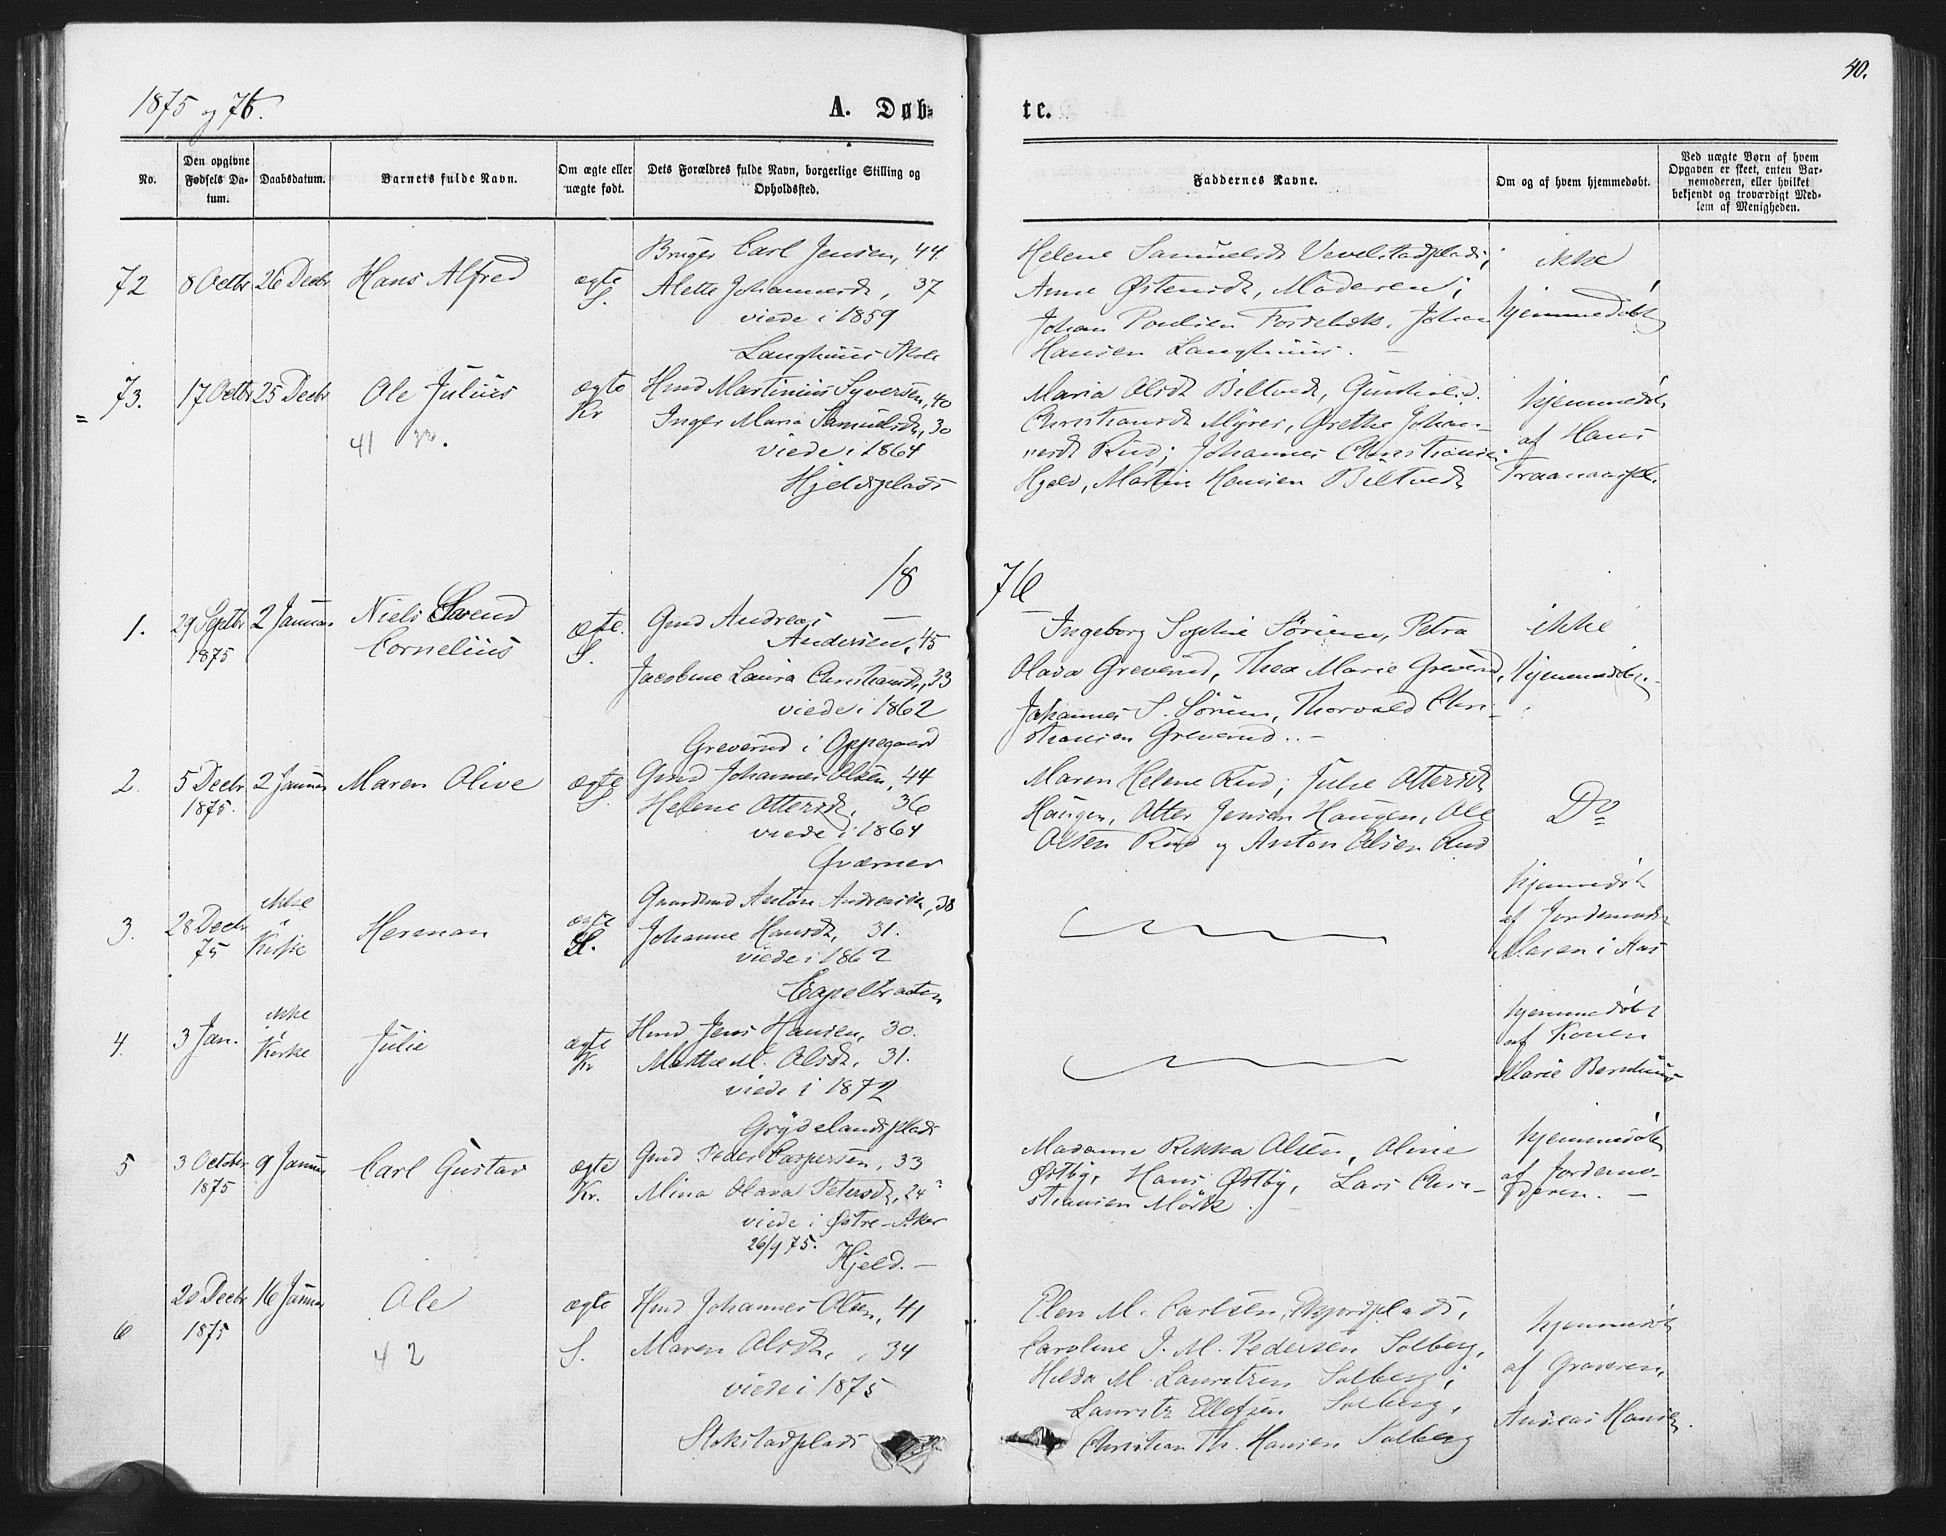 1875 og 76.
A. Døb-
te.
40.
No.
Den opgivne
Fødsels Da-
tum.
Daabsdatum.
Barnets fulde Navn.
Om ægte eller
uægte født.
Dets Forældres fulde Navn, borgerlige Stilling og
Opholdssted.
Faddernes Navne.
Om og af hvem hjemmedøbt.
Ved uægte Børn af hvem
Opgaven er skeet, enten Bar-
nemoderen, eller hvilket
bekjendt og troværdigt Med-
lem af Menigheden.
72
8 Octbr
26 Decbr
Hans Alfred
ægte
S.
Bruger Carl Jensen, 44.
Alette Johannesdt, 37
viede i 1859
Langhuus
Helene Samuelsdt Vevelstadplads;
Anne Østensdt, Moderen;
Johan Poulsen Johan
Hansen Langhuus. –
ikke
hjemmedøbt
73.
17 Octbr
25 Decbr
Ole Julius
41
ægte
Kr
Hmd Martinius Syversen, 40
Inger Maria Samuelsdt, 30
viede i 1864
Hjeldsplads
Maria Olsdt Biltvedt, Gunhild
Christiansdt Myrer, Grethe Johan-
nesdt Rud; Johannes Christiansen
Hjeld, Martin Hansen Biltvedt
hjemmedøbt
af Hans
18
76
1.
29 Septbr
1875
2 Januar
Niels
Cornelius
ægte.
S.
Gmd Andreas
Andersen, 45
Jacobine Laura Christiansdt, 33
viede i 1862
Greverud i Oppegaard
Ingeborg Sophie Sørum, Petra
Olava Greverud, Thea Marie Greverud,
Johannes S. Sørum, Thorvald Chri-
stiansen Greverud. –
ikke
hjemmedøbt. –
2.
5 Decbr
1875.
2 Januar
Maren Olive
ægte
S.
Gmd Johannes Olsen, 44
Helene Ottersdt, 36
viede i 1864
Qværner
Maren Helene Rud; Julie Ottersdt
Haugen, Otter Jensen Haugen, Ole
Olsen Rud og Anton Olsen Rud
Do
3.
28 Decbr
75
ikke
i
Kirke
Herman
ægte
S.
Gaardmd Anton Andersen, 38
Johanne Hansdt, 31.
viede i 1862
Capelbraaten
hjemmedøbt
af Jordemoder
Maren i Aas
4.
3 Jan.
ikke
i
Kirke
Julie
ægte
Kr
Hmd Jens Hansen, 30.
Mathea M. Olsdt, 31.
viede i 1872
Grydelandsplads
hjemmedøbt
af Konen
Marie
5
3 October
1875
9 Januar
Carl Gustav
ægte
Kr.
Gmd Peder Caspersen, 33
Mina Olava Petersdt, 24
viede i Østre-Aker
26/9 75.
Hjeld. –
Madame Rikka Olsen, Oline
Østby, Hans Østby, Lars Chri-
stiansen Mörk. –
hjemmedøbt
af Jordemo-
deren. –
6
20 Decbr
1875
16 Januar
Ole
42
ægte
S.
Hmd Johannes Olsen, 41
Maren Olsdt, 34
viede i 1875
Stokstadplads
Elen M. Carlsen,
Caroline J. M. Pedersen Solberg,
Hilda M. Lauritzen Solberg;
Lauritz Ellefsen Solberg,
Christian Th. Hansen Solberg
hjemmedøbt
af Graveren,
Andreas Hansen.